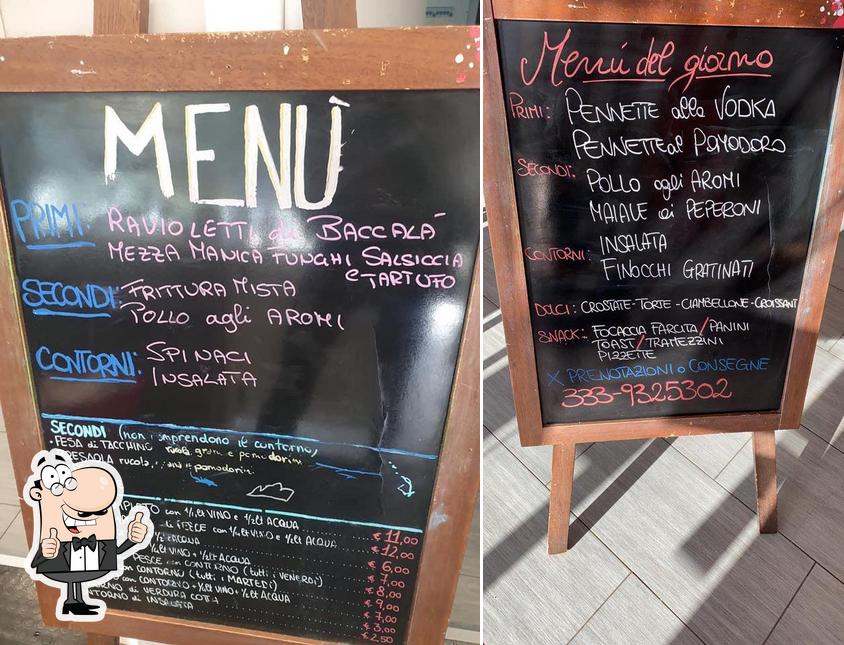 MENÙ
PRIMI: RAVIOLETTI di BACCALÀ
MEZZA MANICA FUNGHI SALSICCIA
e TARTUFO
SECONDI: FRITTURA MISTA
POLLO agli AROMI
CONTORNI: SPINACI
INSALATA
SECONDI (non comprendono il contorno)
FESA di TACCHINO rucola grana e pomodorini
BRESAOLA rucola, pomodorini
con 1/4 lt VINO e 1/2 lt ACQUA € 11,00
di PESCE con 1/4 lt VINO e 1/2 lt ACQUA € 12,00
ACQUA € 6,00
VINO + 1/2 lt ACQUA € 7,00
PESCE con CONTORNO (tutti i VENERDÌ) € 8,00
con CONTORNO (tutti i MARTEDÌ) € 9,00
con CONTORNO + 1/4 lt VINO + 1/2 lt ACQUA € 7,00
di VERDURA COTTA € 3,00
di INSALATA € 2,50
Menù del giorno
PRIMI: PENNETTE alla VODKA
PENNETTE al POMODORO
SECONDI: POLLO agli AROMI
MAIALE ai PEPERONI
CONTORNI: INSALATA
FINOCCHI GRATINATI
DOLCI: CROSTATE - TORTE - CIAMBELLONE - CROISSANT
SNACK: FOCACCIA FARCITA / PANINI
TOAST / TRAMEZZINI
PIZZETTE
X PRENOTAZIONI o CONSEGNE
333-9325302